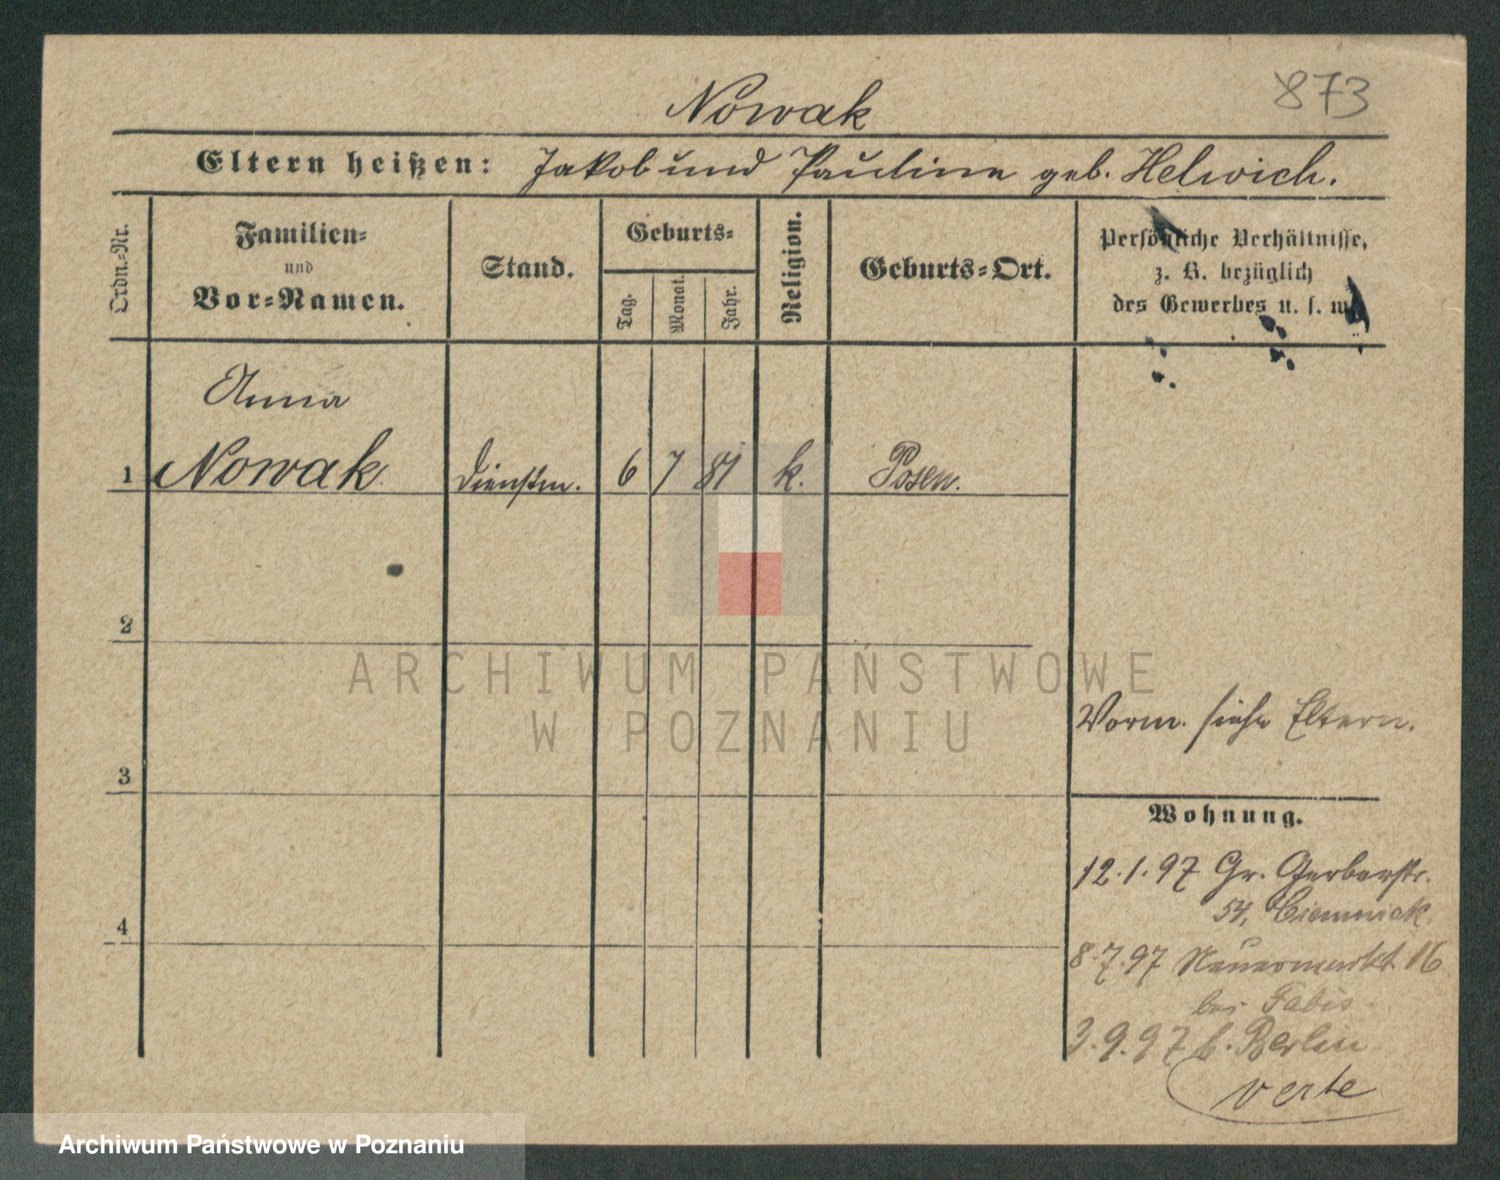 873
Nowak
Eltern heißen: Jakob und Pauline geb. Helwich.
Ordn.-Nr.
Familien-
und
Vor-Namen.
Stand.
Geburts-
Tag.
Monat.
Jahr.
Religion.
Geburts-Ort.
Persönliche Verhältnisse,
z. B. bezüglich
des Gewerbes u. s. w.
Anna
1 Nowak Dienstm. 6 7 81 k. Posen.
2
3
4
Vorm. siehe Eltern.
Wohnung.
12.1.97 Gr. Gerberstr.
54, Ciemniak.
8.7.97 Neuermarkt 16
bei Fabis
3.9.97 Berlin
verte
ARCHIWUM PAŃSTWOWE
W POZNANIU
Archiwum Państwowe w Poznaniu